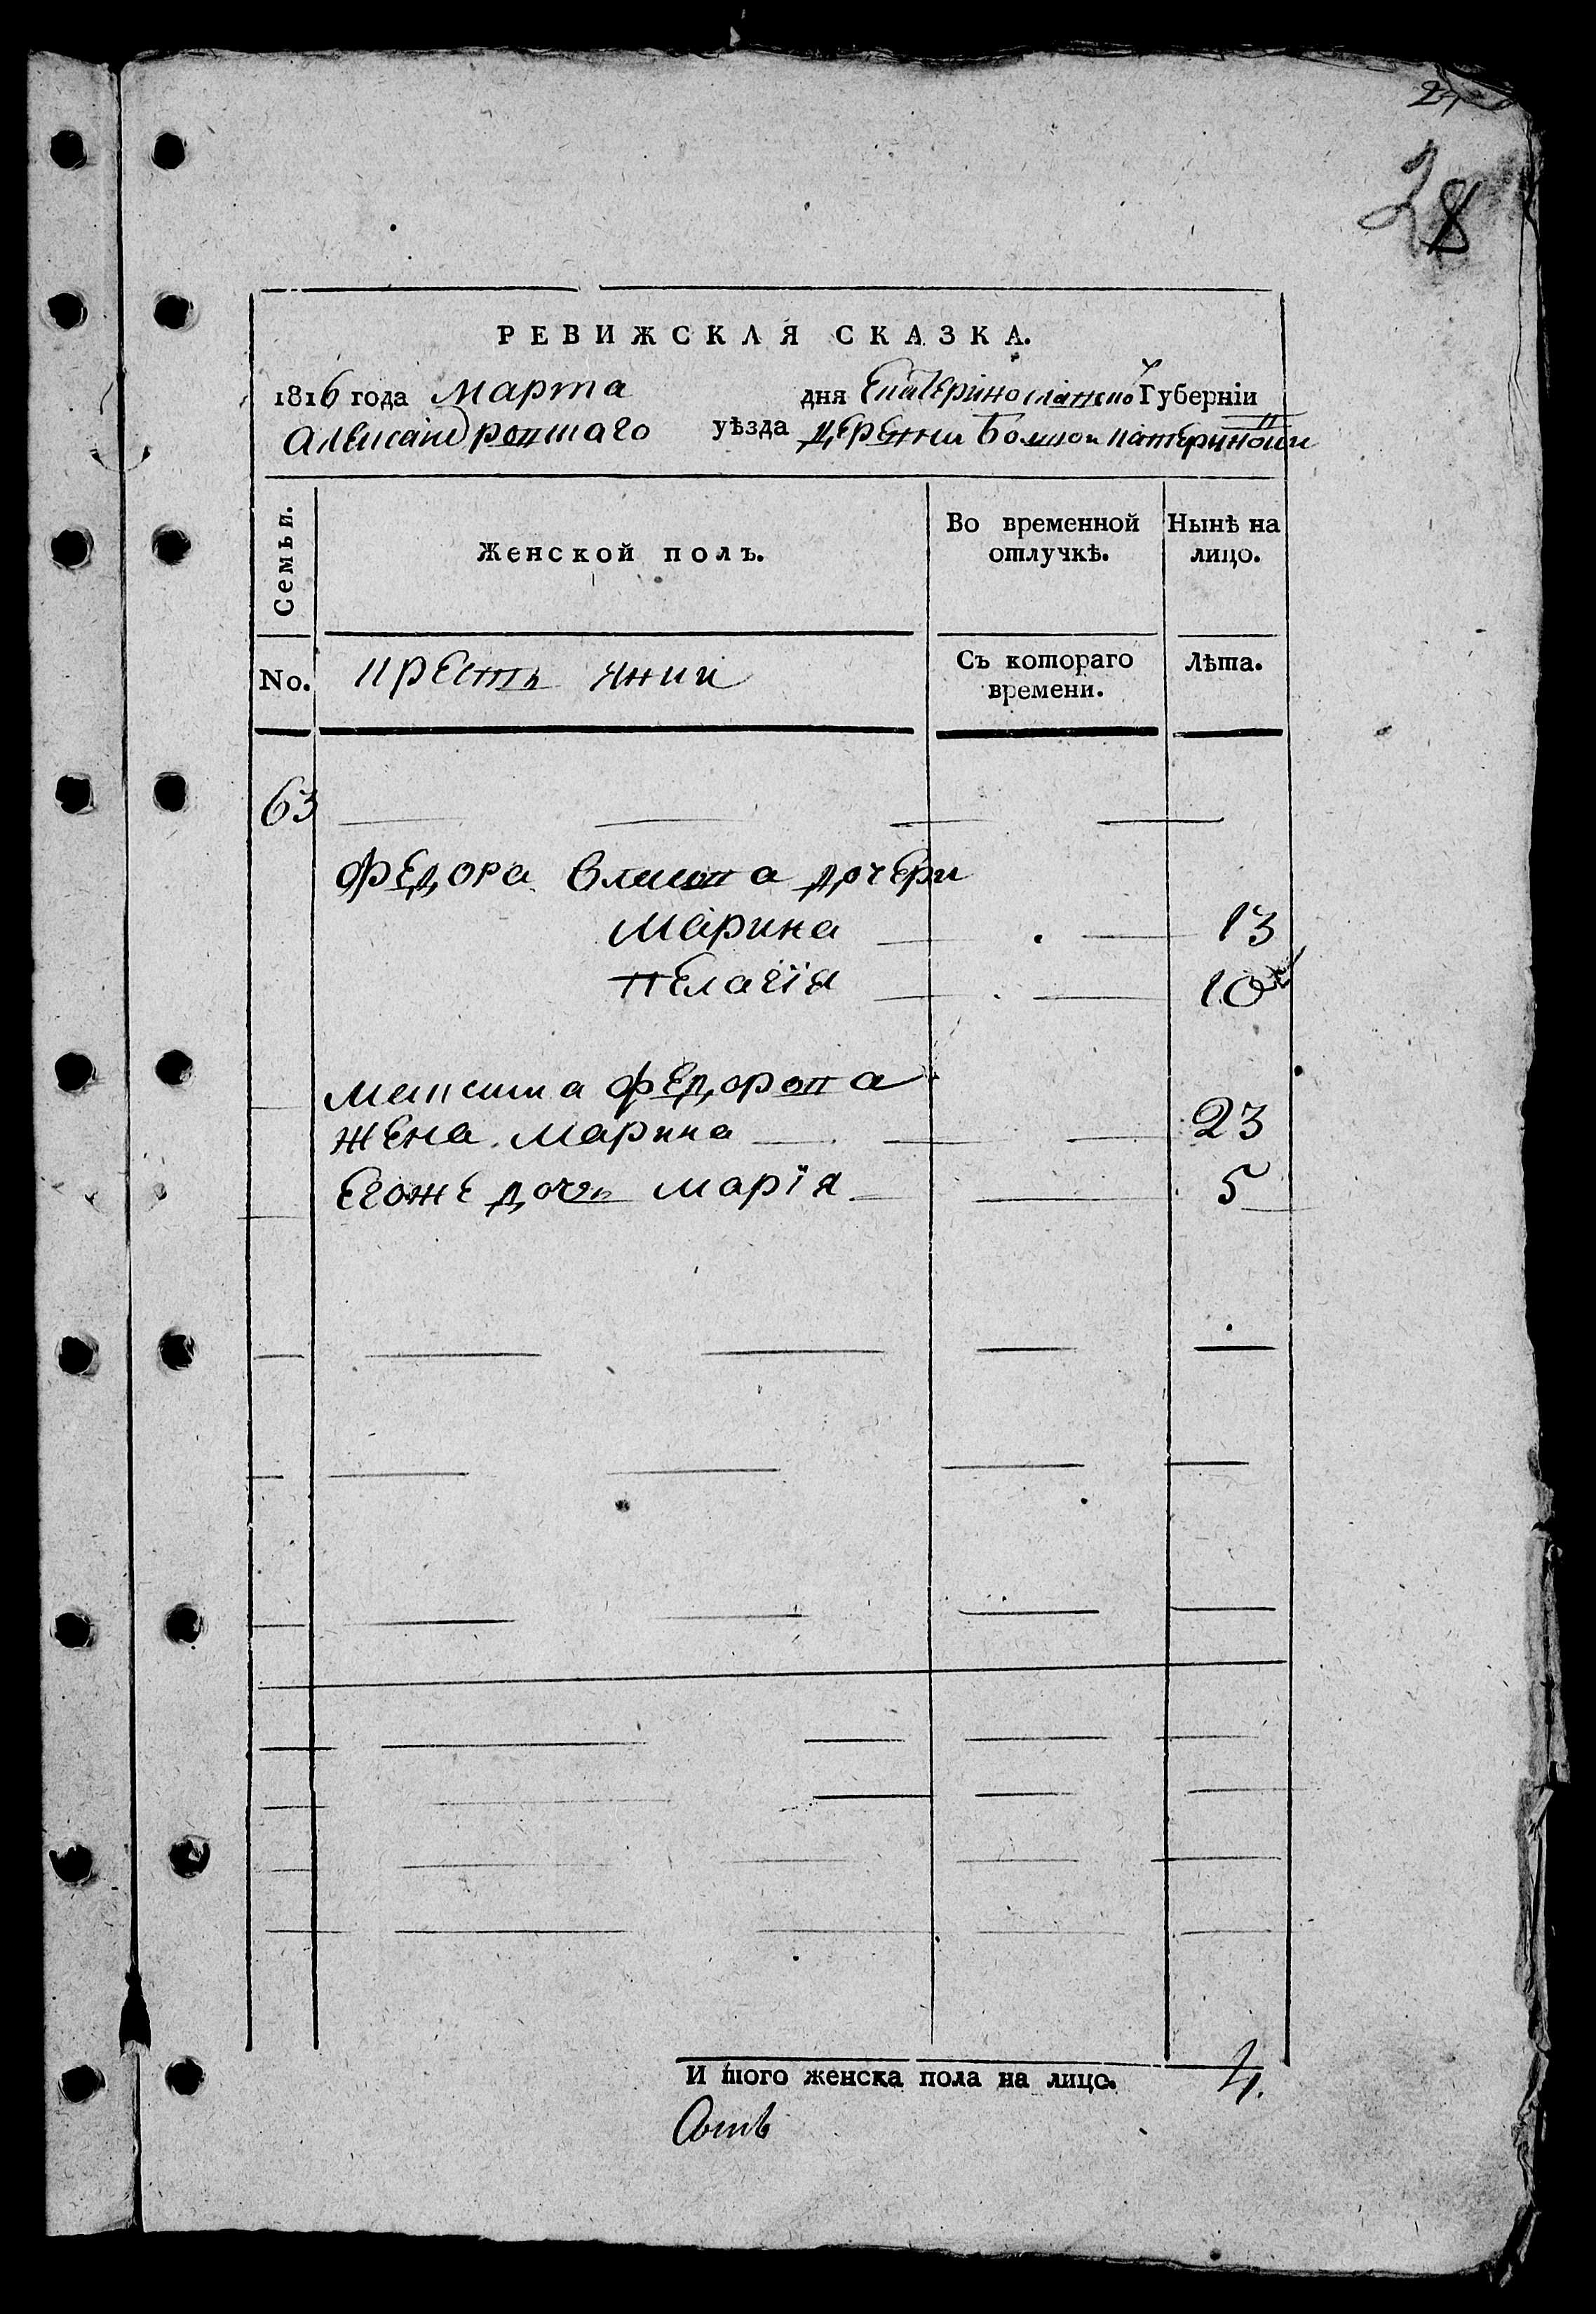 28
РЕВИЖСКАЯ СКАЗКА.
1816 года марта дня Екатеринославской Губерніи
Александровскаго уѣзда деревни Большой Катериновки
Семьи. Женской полъ. Во временной отлучкѣ. Нынѣ на лицо.
No. крестьянки Съ котораго времени. Лѣта.
63
Федора Власова дочери
Марина 13
Пелагія 10
Максима Федорова
жена Марина 23
Егоже дочь Марія 5
И того женска пола на лицо. 4.